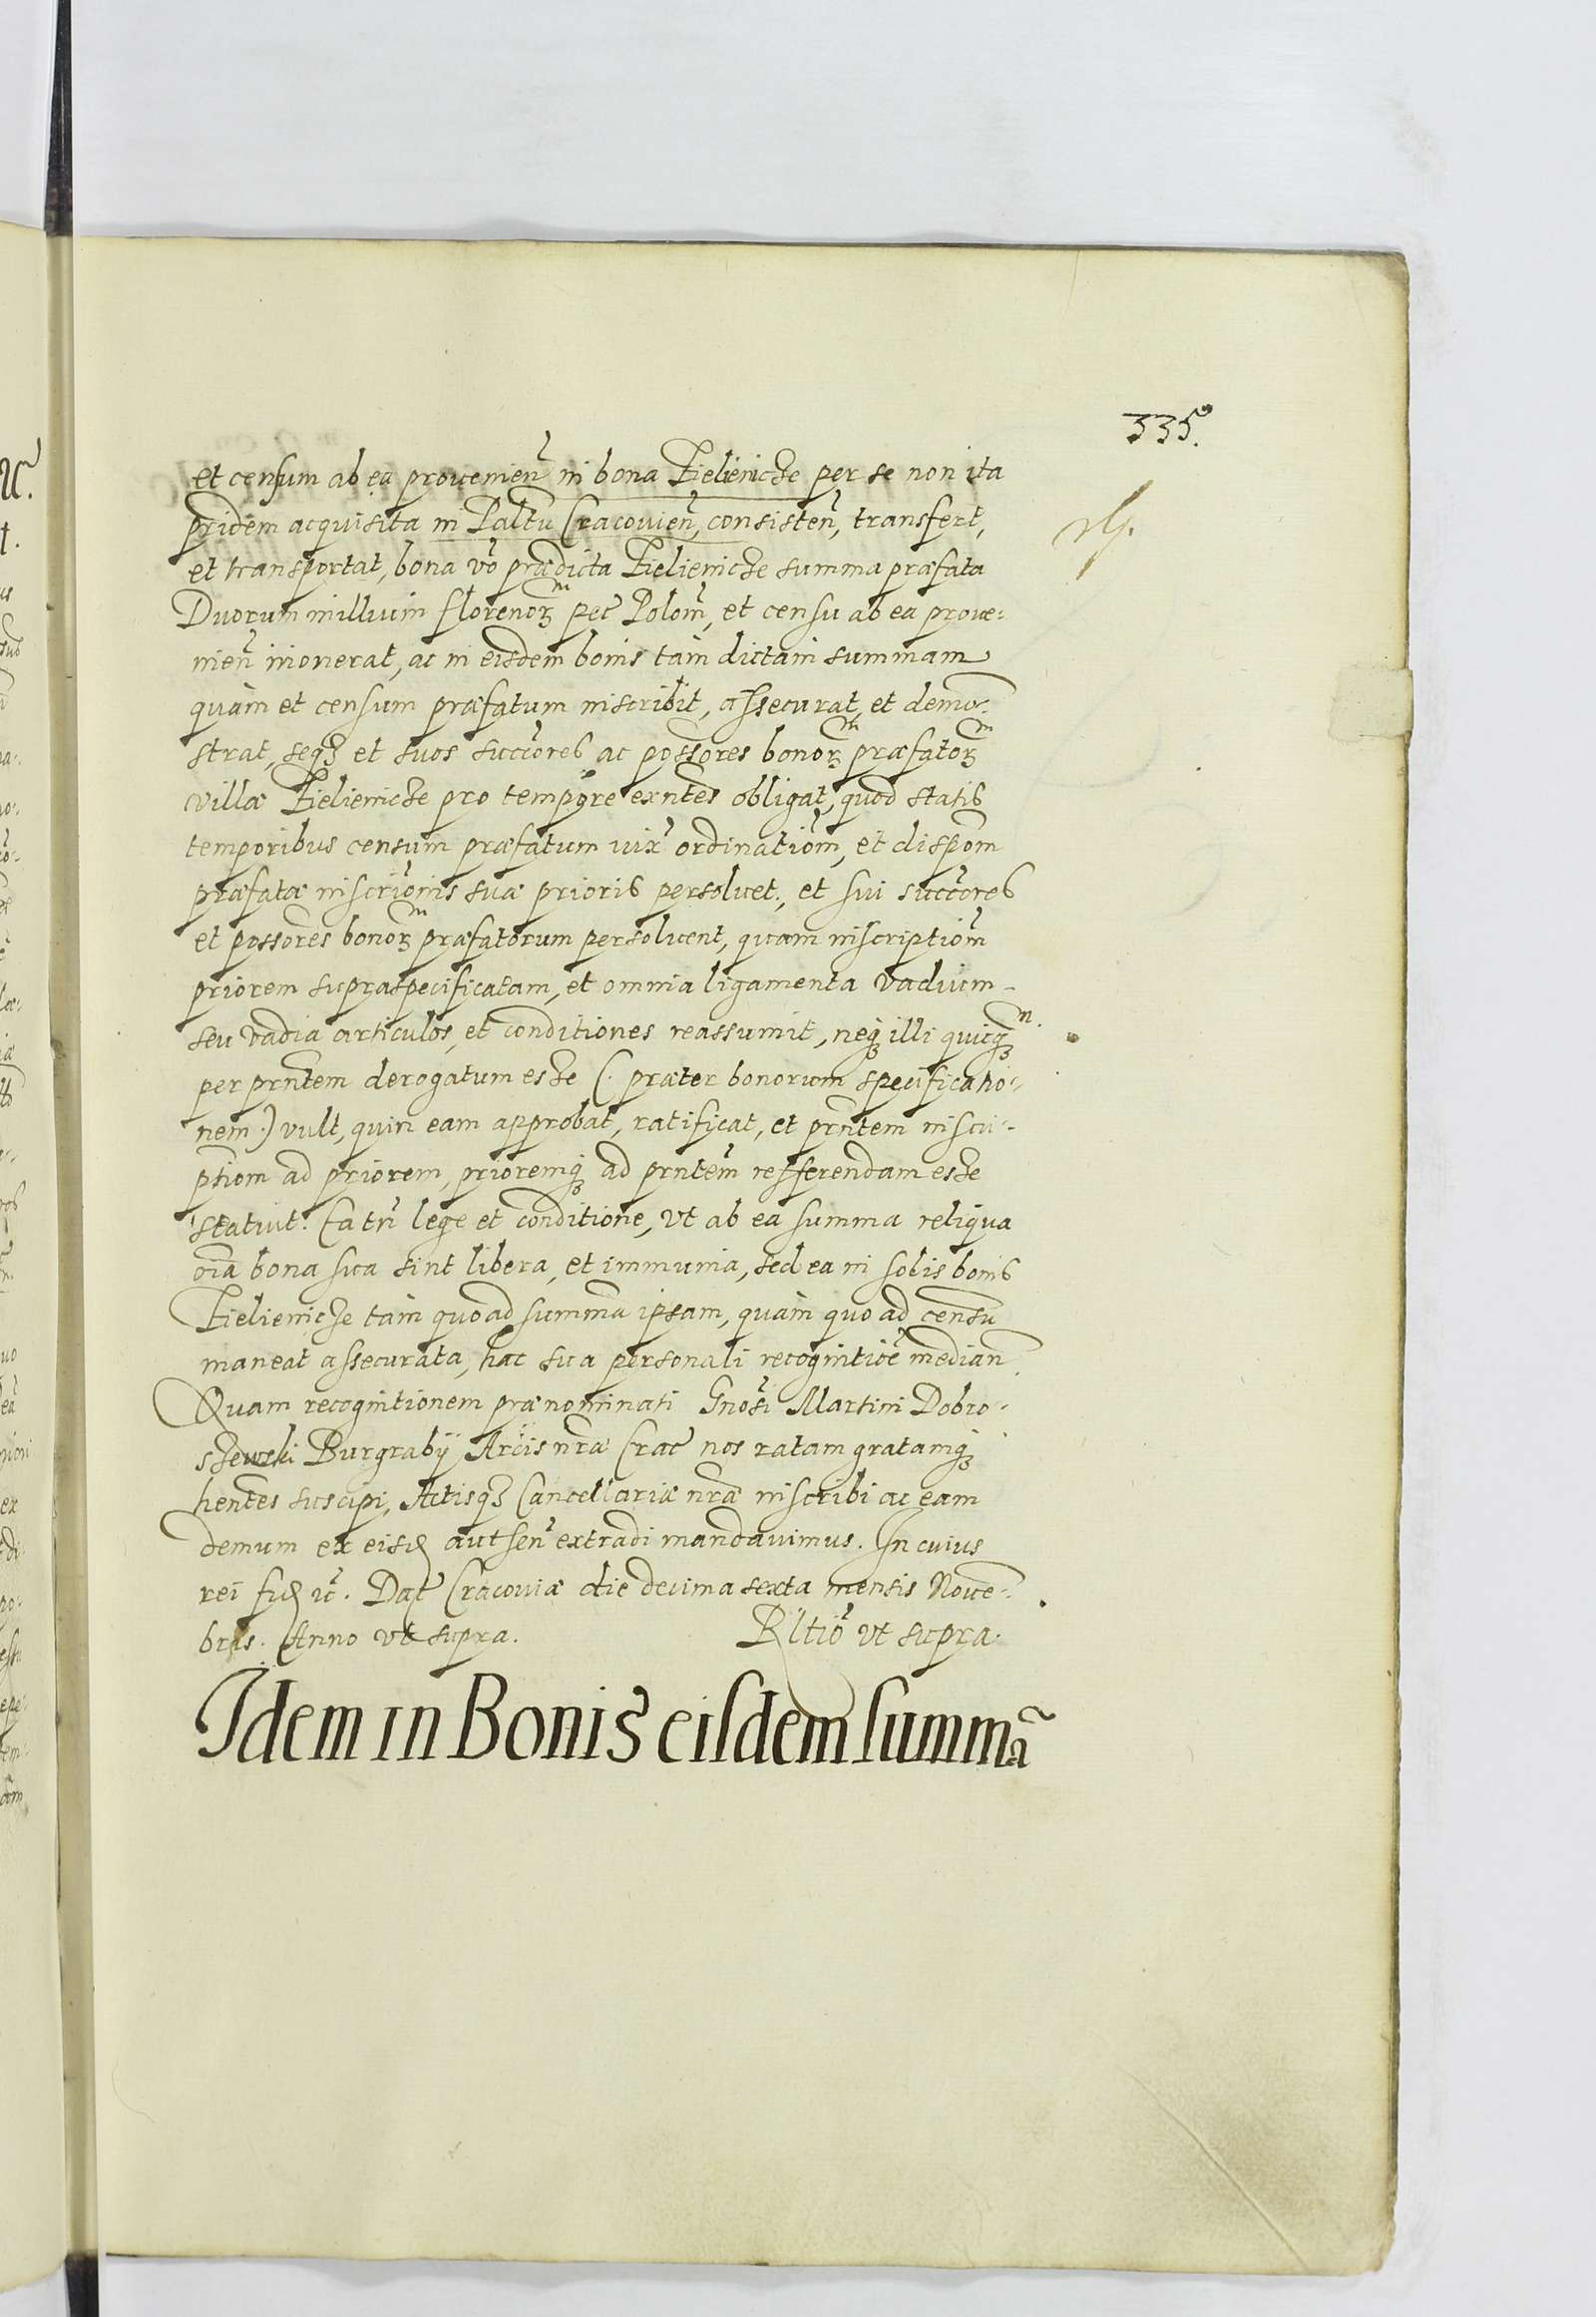 335.
et censum ab ea provenien̄ in bona Zielienicze per se non ita
pridem acquisita in Paltū Cracovien̄, consisten̄, transfert,
et transportat, bona vō prædicta Zielienicze summa præfata
Duorum millium florenorꝫ pec̄ Polōm, et censu ab ea prove:
nien̄ inonerat, ac in eisdem bonis tàm dictam summam
quàm et censum præfatum inscribit, assecurat, et demō:
strat, seqꝫ et suos succ̄ores ac poss̄ores bonorꝫ præfatorꝫ
villæ Zielienicze pro tempore exn̄tes obligat, quod statis
temporibus censum præfatum iux̄ ordinatiōm, et dispōm
præfatæ inscriōnis suæ prioris persolvet, et sui succ̄ores
et poss̄ores bonorꝫ præfatorum persolvent, quam inscriptiōm
priorem supraspecificatam, et omnia ligamenta vadium
seu vadia articulos, et conditiones reassumit, neqꝫ illi quicqꝫ
per prn̄tem derogatum esse (: præter bonorum specificatio:
nem :) vult, quin eam approbat, ratificat, et prn̄tem inscri:
ptiōm ad priorem, prioremqꝫ ad prn̄tem refferendam esse
statuit. Ea tn̄ lege et conditione, vt ab ea summa reliqua
oīa bona sua sint libera, et immunia, sed ea in solis bonis
Zielienicze tàm quo ad summā ipsam, quàm quo ad censū
maneat assecurata, hac sua personali recognitiōe median̄
Quam recognitionem prænominati Gnōsi Martini Dobro:
szewski Burgrabÿ Arcis nr̄æ Crac̄ nos ratam gratamqꝫ
hen̄tes suscipi, Actisqꝫ Cancellariæ nr̄æ inscribi ac eam
demum ex eisd autsen̄ extradi mandavimus. In cuius
rei fid ic̄. Dat̄ Cracoviæ die decima sexta mensis Nove:
bris. Anno vt supra. Rltiō vt supra.
Idem in Bonis eisdem summā